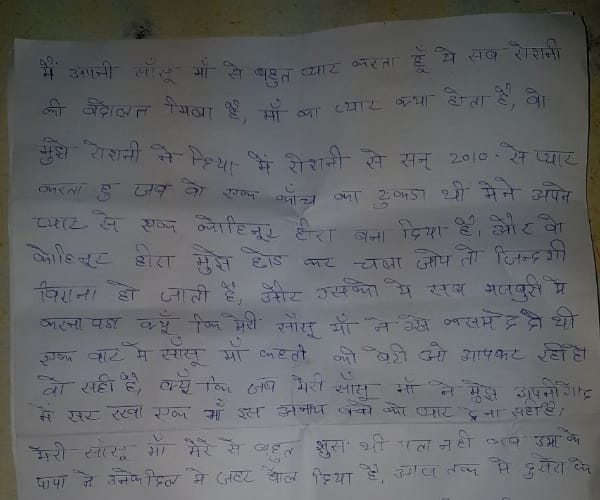 मैं अपनी साँसू माँ से बहुत प्यार करता हूँ ये सब रोशनी
की बदोलत मिला है, माँ का प्यार क्या होता है, वो
मुझे रोशनी ने दिया मैं रोशनी से सन् 2010. से प्यार
करता हु जब वो एक काँच का टुकडा थी मेने अपने
प्यार से एक कोहिनूर हीरा बना दिया है, और वो
कोहिनूर हीरा मुझे छोड कर चला जाये तो जिन्दगी
विराना हो जाती है, और उसको ये सब मजबुरी मे
करना पडा क्यूँ कि मेरी साँसू माँ ने उसे कसमे दे दी थी
एक बार मे साँसू माँ कहती की बेटी जो आप कर रही हो
वो सही है, क्यूँ कि जब मेरी साँसू माँ ने मुझे अपनी गोद
मे सर रखा एक माँ इस अनाथ बच्चे को प्यार देना सही है,
मेरी साँसू माँ मेरे से बहुत खुस थी पता नही कब उमा के
पापा ने उनके दिल मे जहर घोल दिया है, आज तक मे दुसरो के